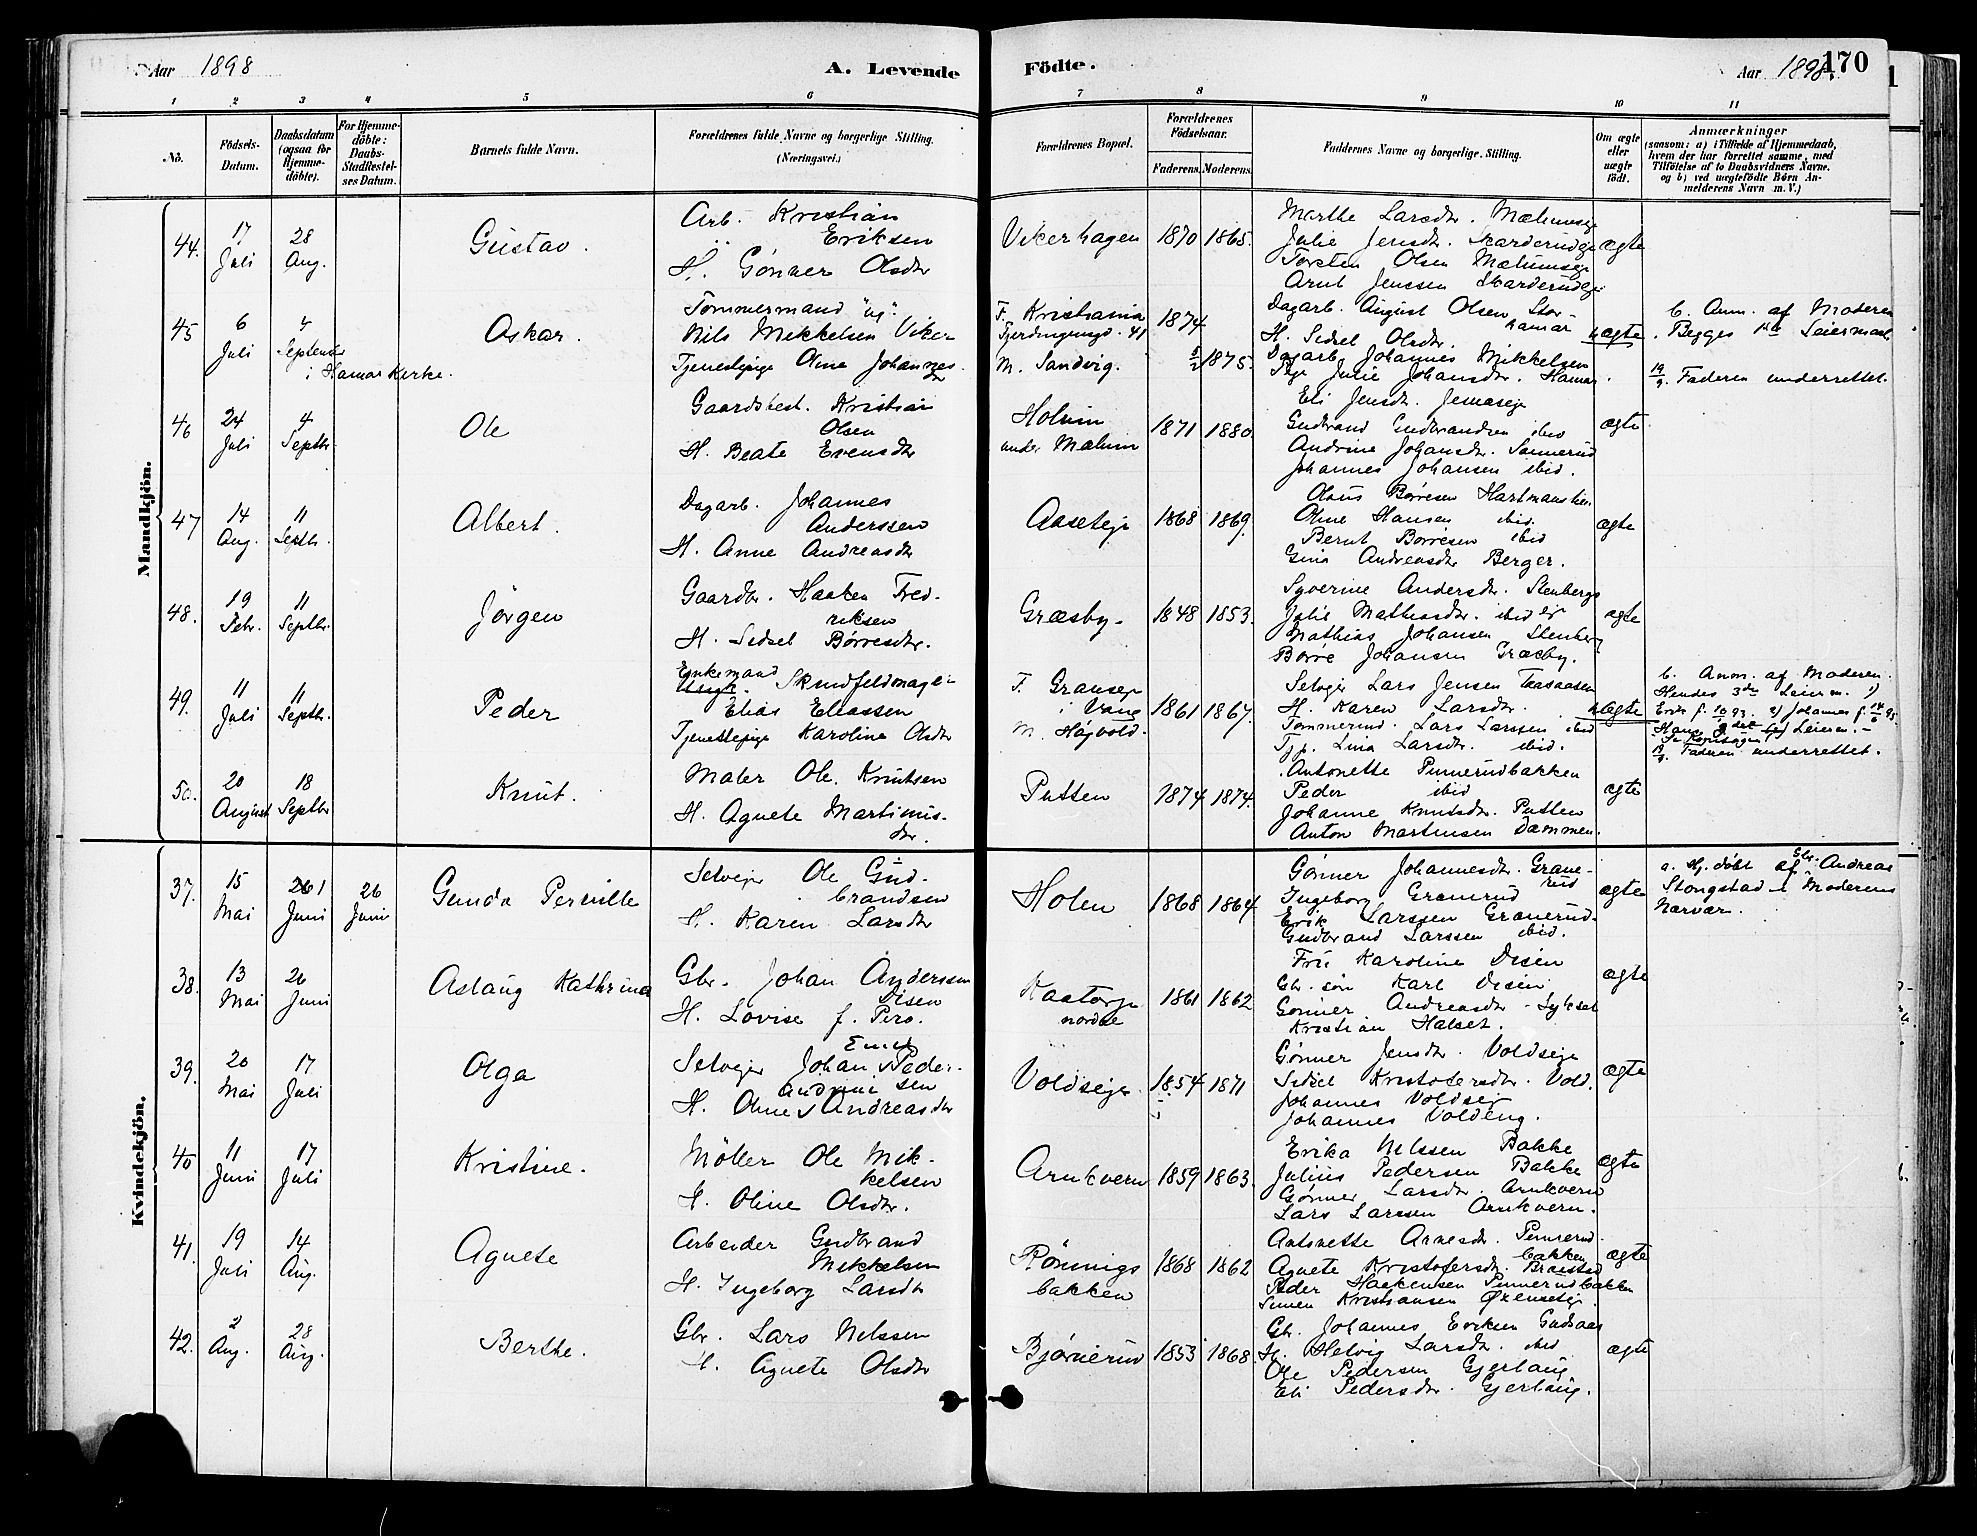 Aar 1898
A. Levende
Födte.
Aar 1898.
170
1 2 3 4 5 6 7 8 9 10 11
No.
Födsels-Datum.
Daabsdatum (ogsaa for Hjemme-döbte).
For Hjemme-döbte: Daabs-Stadfæstel-ses Datum.
Barnets fulde Navn.
Forældrenes fulde Navne og borgerlige Stilling. (Næringsvei.)
Forældrenes Bopæl.
Forældrenes Födselsaar.
Faderens. Moderens.
Faddernes Navne og borgerlige Stilling.
Om ægte eller uægte födt.
Anmærkninger
(saasom: a) i Tilfælde af Hjemmedaab,
hvem der har forrettet samme, med
Tilföielse af to Daabsvidners Navne.
og b) ved uægtefödte Børn An-
melderens Navn m. V.)
Mandkjön.
44. 17 Juli 28 Aug. Gustav.
Arb. Kristian
Eriksen
H. Gönner Olsdtr
Vikerhagen 1870 1865.
Marthe Larsdtr. Mælumseje
Julie Jensdtr. Skarderudeje
Torsten Olsen Mælumseje
Arnt Jenssen Skarderudeje
ægte
45 6 Juli 4 September i Hamar Kirke. Oskar.
Tømmermand ug.
Nils Mikkelsen Viker
Tjenestepige Oline Johannes-
dtr
F. Kristiania
M. Sandvig.
1874 1875.
Dagarb. August Olsen Stor-
hamar
H. Sidsel Olsdtr.
Dagarb. Johannes Mikkelsen
Pige Julie Johansdtr. Hamar.
uægte
b. Anm. af Moderen
Begges 1ste Leiermaal.
19/9. Faderen underrettet.
46 24 Juli 4 Septbr. Ole
Gaardbest. Kristian
Olsen
H. Beate Evensdtr
Holum
under Mælum
1871 1880.
Eli Jensdtr. Jemseje
Gudbrand Gudbrandsen ibid
Andrine Johansdtr. Sannerud
Johannes Johansen ibid.
ægte
47 14 Aug. 11 Septbr. Albert.
Dagarb. Johannes
Anderssen
H. Anne Andreasdtr
Aaseteje 1868 1869.
Olaus Børresen Hartmansten
Oline Hansen ibid.
Bernt Børresen ibid
Gina Andreasdtr Berger.
ægte
48. 19 Febr. 11 Septbr. Jörgen
Gaardbr. Haaken Fred-
riksen
H. Sidsel Børresdtr.
Græsby. 1848 1853.
Syverine Andersdtr. Stenberg
Julie Mathiasdtr. ibid
Mathias Johansen Stenberg
Borre Johansen Græsby.
ægte
49. 11 Juli 11 Septbr. Peder
Enkemand
Skindfeldmager
Elias Eliassen
Tjenestepige Karoline Olsdtr
F. Granseje
i Vang
M. Højvold.
1861 1867.
Selvejer Lars Jensen Taasaasen
H. Karen Larsdtr.
Tømmermd. Lars Larsen ibid
Tjp. Lina Larsdtr. ibid.
uægte
b. Anm. af Moderen.
Hendes 3die Leierm. 1)
Erik f. 10/9 93. 2) Johannes f. 14/6 95.
Leierm.
19/9. Faderen underrettet.
50. 20 August 18 Septbr Knut.
Maler Ole Knutsen
H. Agnete Martinus-
dtr.
Putten 1874 1874.
Antonette Pinnerudbakken
Peder ibid
Johanne Knutsdtr. Putten
Anton Martinsen Dammen.
ægte
Kvindekjön.
37. 15 Mai 26 Juni 26 Juni Gunda Pernille
Selvejer Ole Gud-
brandsen
H. Karen Larsdtr
Holen 1868 1864
Gønner Johannesdtr. Grane-
rud
Ingeborg Granerud
Erik Larssen Granerud.
Gudbrand Larssen ibid.
ægte
a. Hj. døbt af Gbr. Andreas
Stongstad i Moderens
Nærvær.
38. 13 Mai 26 Juni Aslaug Kathrine
Gbr. Johan Anderssen
Disen
H. Lovise f. Pero.
Kaatorp
nordre
1861 1862
Frü Karoline Disen
Gbr. søn Karl Disen
Gønner Andreasdtr. Lykset
Kristian Halset.
ægte
39. 20 Mai 17 Juli Olga
Selvejer Johan Emil Peder-
sen
H. Oline Andrine Andreasdtr
Voldseje. 1854 1871
Gønner Jensdtr. Voldseje
Sidsel Kristofersdtr. Vold.
Johannes Voldseje
Johannes Voldeng.
ægte
40 11 Juni 17 Juli Kristine.
Möller Ole Mik-
kelsen
H. Oline Olsdtr.
Arnkvern 1859 1863.
Erika Nilssen Bakke
Julius Pedersen Bakke
Gønner Larsdtr. Arnkvern
Lars Larssen Arnkvern.
ægte
41. 19 Juli 14 Aug. Agnete
Arbeider Gudbrand
Mikkelsen
H. Ingeborg Larsdtr
Rønnings
bakken
1868 1862
Antonette Arnesdtr. Pinnerud-
bakken
Agnete Kristofersdtr. Braastad
Peder Haakensen Pinnerudbakken
Simen Kristiansen
ægte
42. 2 Aug. 28 Aug. Berthe.
Gbr. Lars Nilssen
H. Agnete Olsdtr
Bjørnerud 1853 1868.
Gbr. Johannes Eriksen
H. Helvig Larsdtr. ibid
Ole Pedersen Gjerlaug
Eli Pedersdtr. Gjerlaug.
ægte